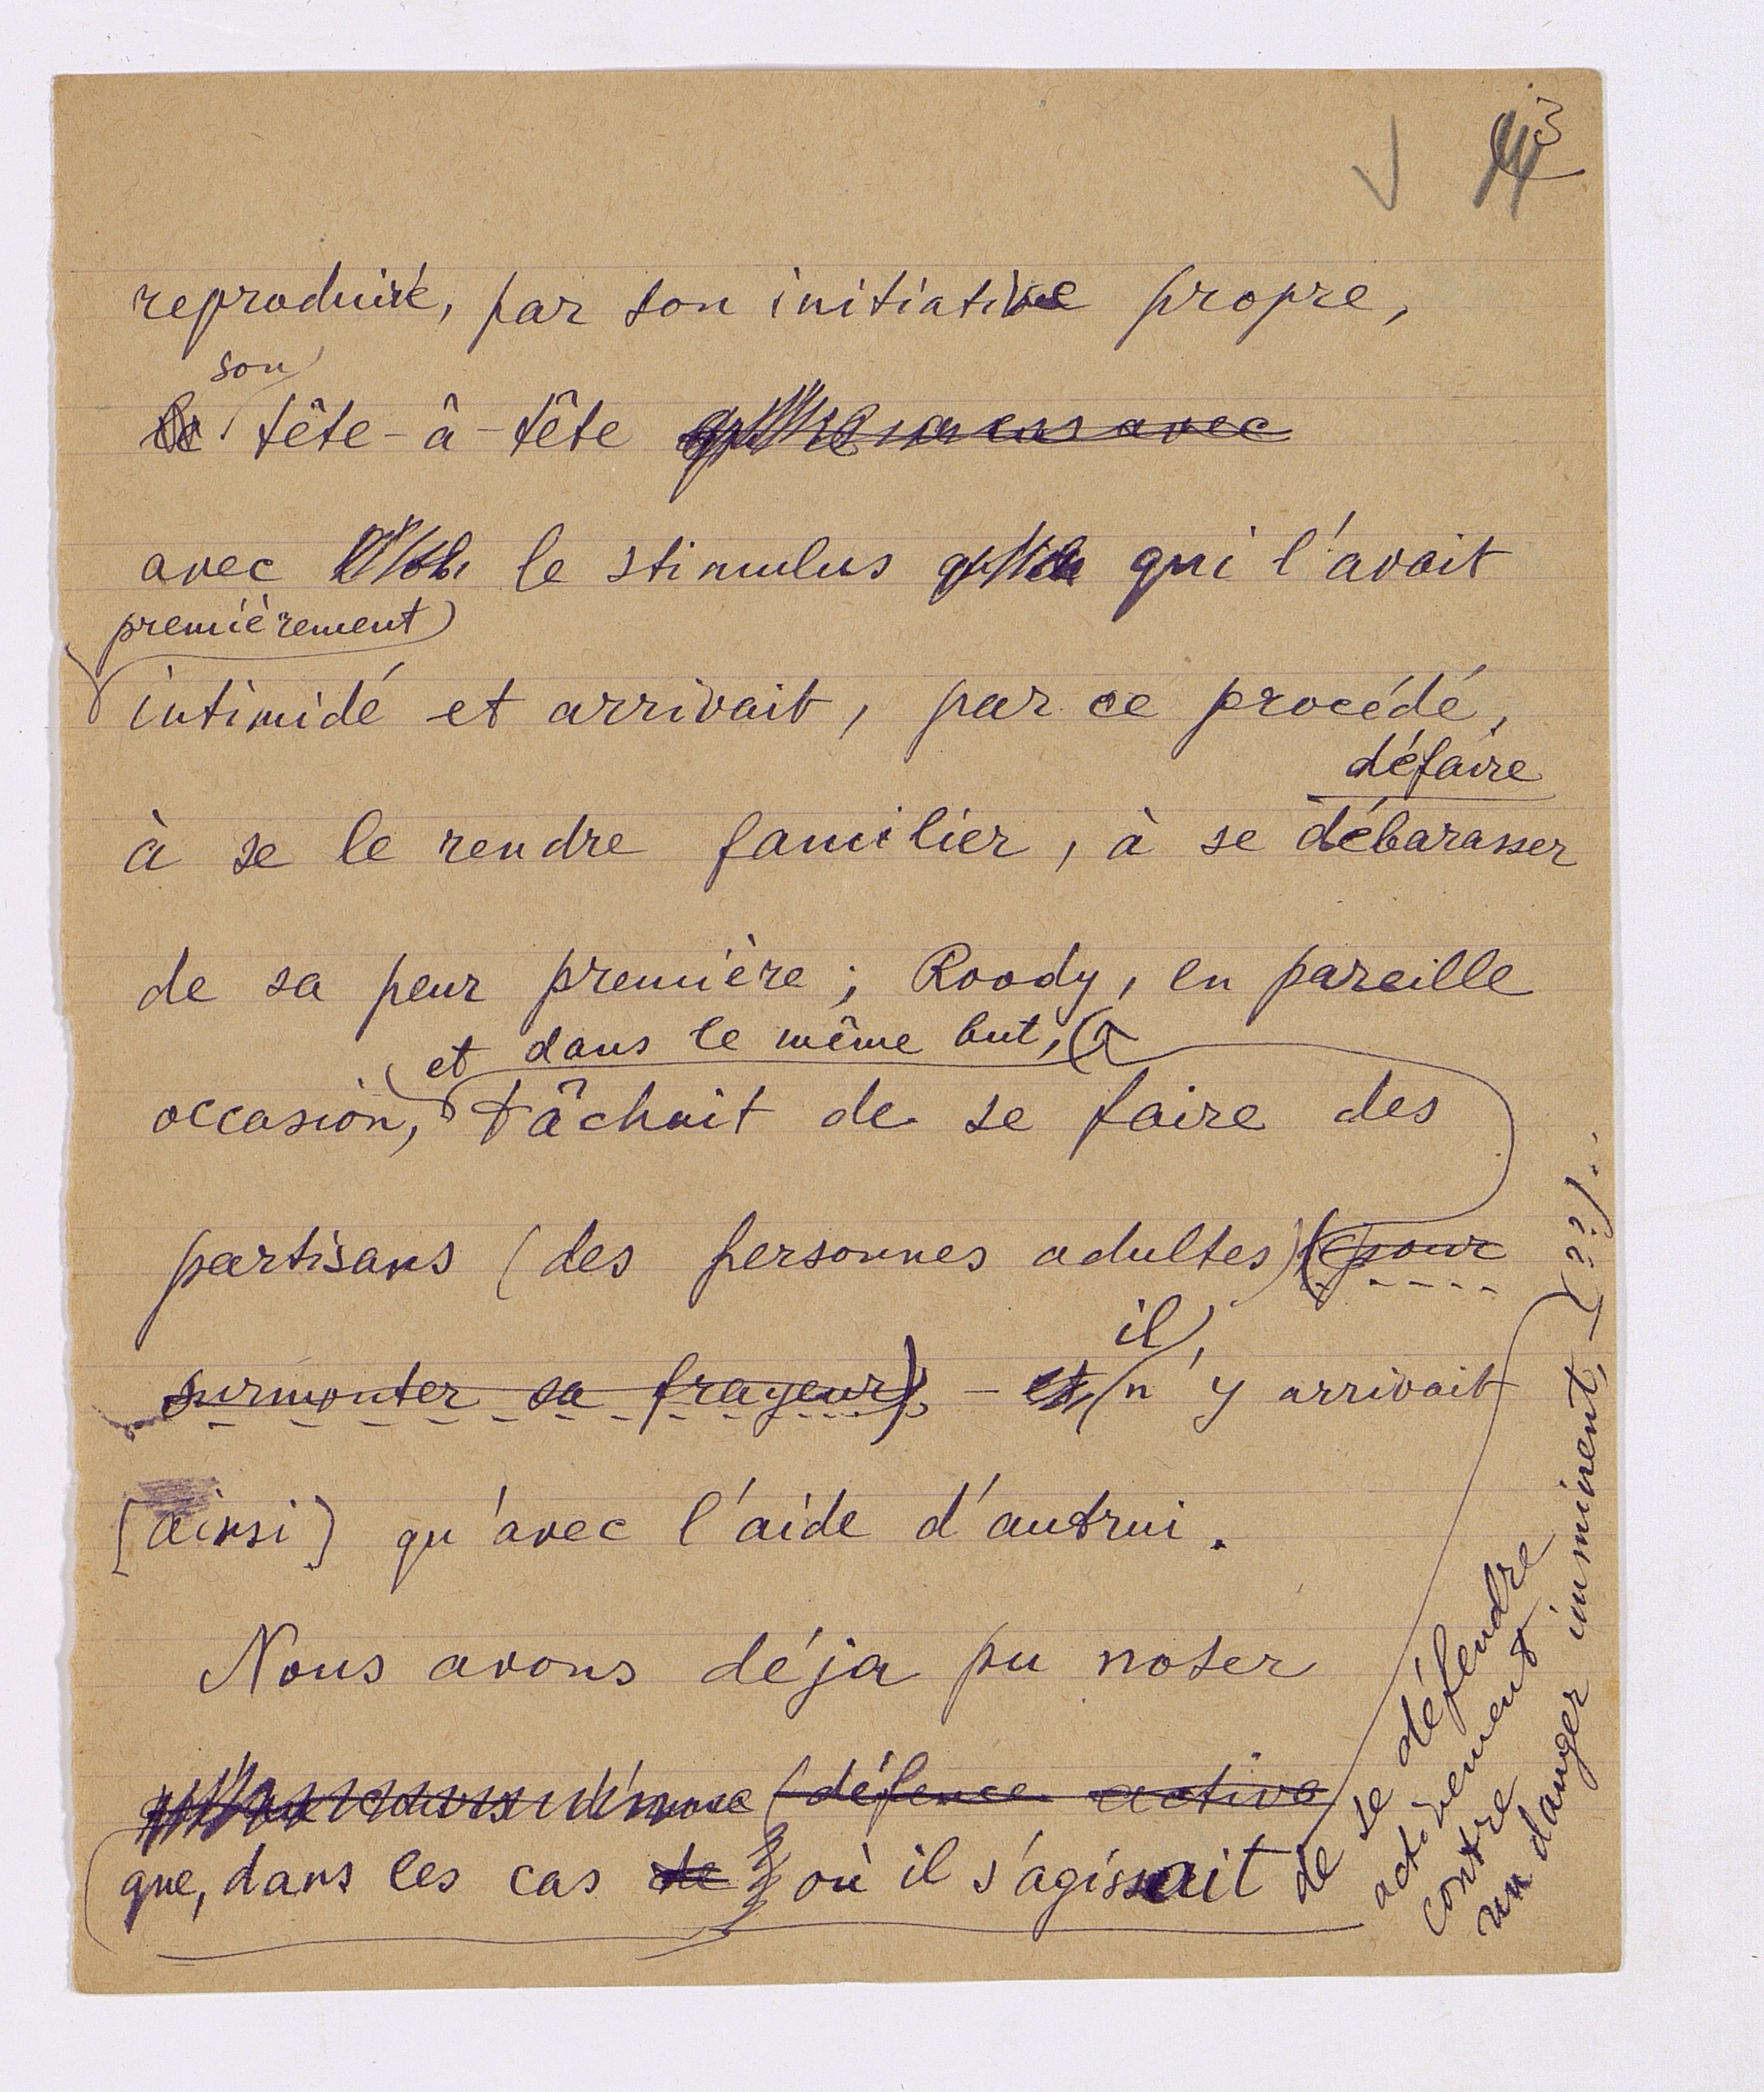 3
reproduire, par son initiative propre,
son
tête-à-tête
avec le stimulus qui l'avait
premièrement
intimidé et arrivait, par ce procédé,
défaire
à se le rendre familier, à se débarasser
de sa peur première; Roody, en pareille
et dans le même but,
occasion, tâchait de se faire des
partisans (des personnes adultes) (pour
il
surmonter sa frayeur) – et n'y arrivait
[ainsi] qu'avec l'aide d'autrui.
Nous avons déjà pu noter
(défence active
que, dans les cas de où il s'agissait de se défendre
activement
contre
un danger imminent, (??).